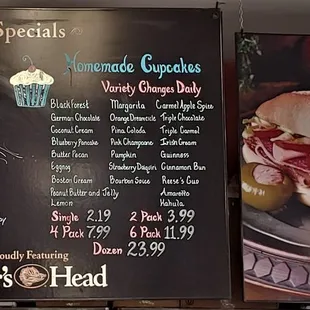 Specials
Homemade Cupcakes
Variety Changes Daily
Black Forest Margarita Carmel Apple Spice
German Chocolate Orange Dreamcicle Triple Chocolate
Coconut Cream Pina Colada Triple Carmel
Blueberry Pancake Pink Champagne Irish Cream
Butter Pecan Pumpkin Guinness
Eggnog Strawberry Daiquiri Cinnamon Bun
Boston Cream Bourbon Spice Reese's Cup
Peanut Butter and Jelly Amaretto
Lemon Kahula
Single 2.19 2 Pack 3.99
4 Pack 7.99 6 Pack 11.99
Dozen 23.99
oudly Featuring
r's Head